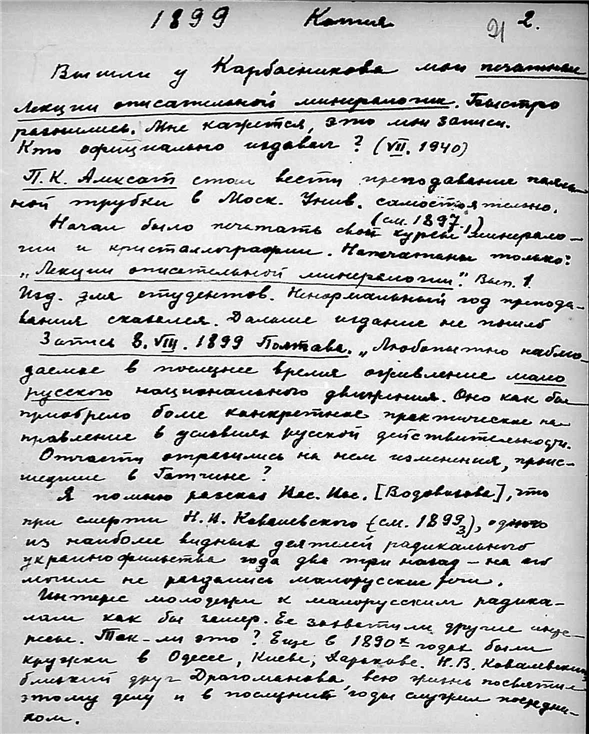 1899 Копия 21 2.
Вышли у Карбасникова мои печатные
Лекции описательной минералогии. Быстро
разошлись. Мне кажется, это мои записи.
Кто официально издавал? (VII. 1940)
П.К. Алексат стал вести преподавание паяль-
ной трубки в Моск. Унив. самостоятельно.
(см. 1897.1)
Начал было печатать свои курсы минерало-
гии и кристаллографии. Напечатаны только:
„Лекции описательной минералогии". Вып. 1.
Изд. для студентов. Ненормальный год препода-
вания сказался. Дальше издание не пошло
Запись 8. VIII. 1899 Полтава. „Любопытно наблю-
даемое в последнее время оживление мало
русского национального движения. Оно как бы
приобрело более конкретное практическое на
правление в условиях русской действительности.
Отчасти отразились на нем изменения, проис-
шедшие в Гатчине?
Я помню рассказ Вас. Вас. [Водовозова], что
при смерти Н.И. Ковалевского (см. 1899.3), одного
из наиболее видных деятелей радикального
украинофильства года два три назад – на его
могиле не раздались малорусские речи.
Интерес молодежи к малорусским радика-
лам как бы замер. Ее захватили другие инте-
ресы. Так-ли это? Еще в 1890х годах были
кружки в Одессе, Киеве, Харькове. Н.В. Ковалевский
близкий друг Драгоманова всю жизнь посвятил
этому делу и в последние годы служил посредни-
ком.